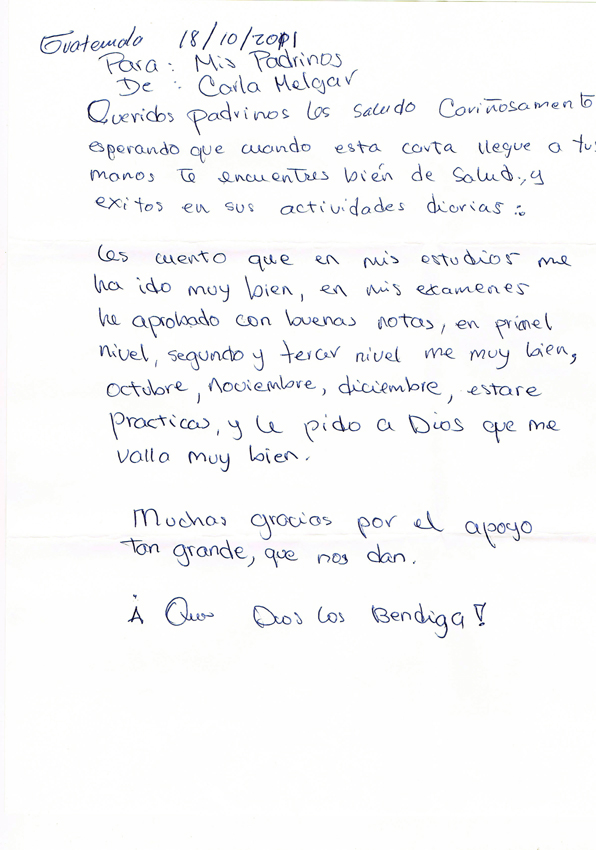 Guatemala 18/10/2011
Para: Mis Padrinos
De : Carla Melgar
Queridos padrinos los saludo Cariñosamente
esperando que cuando esta carta llegue a tus
manos te encuentres bién de salud, y
exitos en sus actividades diarias :
Les cuento que en mis estudios me
ha ido muy bien, en mis examenes
he aprobado con buenas notas, en primel
nivel, segundo y tercer nivel me muy bien,
octubre, noviembre, diciembre, estare
practicas, y le pido a Dios que me
valla muy bien.
Muchas gracias por el apoyo
tan grande, que nos dan.
¡ Que Dios los Bendiga!